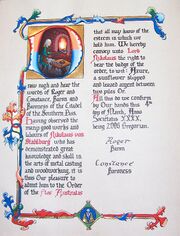 now nigh and hear the
words of Roger and
Constance, Baron and
Baroness of the Citadel
of the Southern Pass.
Having observed the
many good works and
labors of Nikolaus von
Stahlburg who has
demonstrated great
knowledge and skill in
the arts of metal casting
and woodworking, it is
thus Our pleasure to
admit him to the Order
of the Flos Australus
that all may know of the
esteem in which we
hold him. We hereby
convey unto Lord
Nikolaus the right to
bear the badge of the
order, to wit: Azure,
a sunflower slipped
and leaved argent between
two piles Or.
All this do we confirm
by Our hands this 4th
day of March, Anno
Societatus XXXX,
being 2006 Gregorian.
Roger
Baron
Constance
Baroness